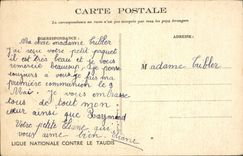 CARTE POSTALE
La correspondance au recto n'est pas acceptée par tous les pays étrangers
CORRESPONDANCE
ADRESSE
Ma chère madame Cubler
J'ai reçu votre petit paquet
il est très beau et je vous
remercie beaucoup, je pense
toujours à vous. Je fais ma
première communion le 9
Mai. Je vous embrasse
tous de tout mon
cœur ainsi que Raymond
Votre petite Liliane qui
vous aime bien Liliane
Madame Cubler
LIGUE NATIONALE CONTRE LE TAUDIS